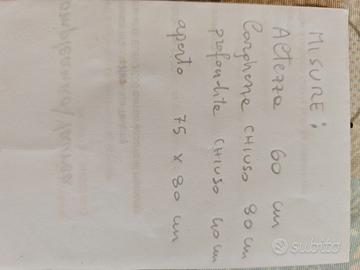 MISURE:
Altezza 60 cm
larghezza CHIUSO 80 cm
profondità CHIUSO 40 cm
aperto 75 x 80 cm
subito